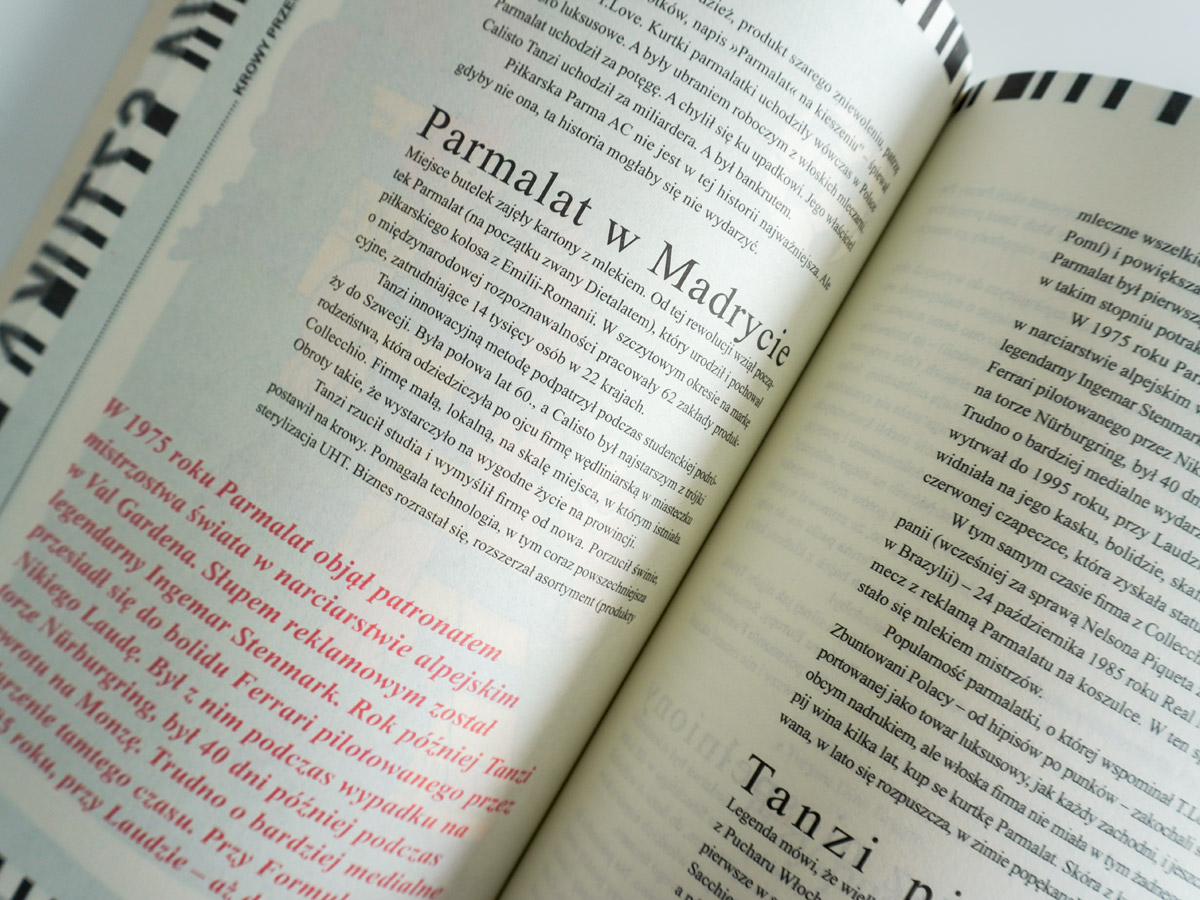 KROWY PRZE
produkt szarego zniewolenia, patrzę
napis »Parmalat« na kieszeniu" – śpiewał
T.Love. Kurtki parmalatki uchodziły wówczas w Polsce
luksusowe. A były ubraniem roboczym z włoskich mleczarni.
Parmalat uchodził za potęgę. A chylił się ku upadkowi. Jego właściciel
Calisto Tanzi uchodził za miliardera. A był bankrutem.
Piłkarska Parma AC nie jest w tej historii najważniejsza. Ale
gdyby nie ona, ta historia mogłaby się nie wydarzyć.
Parmalat w Madrycie
Miejsce butelek zajęły kartony z mlekiem. Od tej rewolucji wziął począ-
tek Parmalat (na początku zwany Dietalatem), który urodził i pochował
piłkarskiego kolosa z Emilii-Romanii. W szczytowym okresie na markę
o międzynarodowej rozpoznawalności pracowały 62 zakłady produk-
cyjne, zatrudniające 14 tysięcy osób w 22 krajach.
Tanzi innowacyjną metodę podpatrzył podczas studenckiej podró-
ży do Szwecji. Była połowa lat 60., a Calisto był najstarszym z trójki
rodzeństwa, która odziedziczyła po ojcu firmę wędliniarską w miasteczku
Collecchio. Firmę małą, lokalną, na skalę miejsca, w którym istniała.
Obroty takie, że wystarczyło na wygodne życie na prowincji.
Tanzi rzucił studia i wymyślił firmę od nowa. Porzucił świnie,
postawił na krowy. Pomagała technologia, w tym coraz powszechniejsza
sterylizacja UHT. Biznes rozrastał się, rozszerzał asortyment (produkty
W 1975 roku Parmalat objął patronatem
mistrzostwa świata w narciarstwie alpejskim
w Val Gardena. Słupem reklamowym został
legendarny Ingemar Stenmark. Rok później Tanzi
przesiadł się do bolidu Ferrari pilotowanego przez
Nikiego Laudę. Był z nim podczas wypadku na
torze Nürburgring, był 40 dni później podczas
powrotu na Monzę. Trudno o bardziej medialne
tamtego czasu. Przy Formule
roku, przy Laudzie – aż do
mleczne wszelkie
Pomì) i powiększa
Parmalat był pierwsz
w takim stopniu potrak
W 1975 roku Par
w narciarstwie alpejskim
legendarny Ingemar Stenmar
Ferrari pilotowanego przez Nik
na torze Nürburgring, był 40 d
Trudno o bardziej medialne wyda
wytrwał do 1995 roku, przy Laudz
widniała na jego kasku, bolidzie, ska
czerwonej czapeczce, która zyskała statu
W tym samym czasie firma z Collecch
panii (wcześniej za sprawą Nelsona Piqueta
w Brazylii) – 24 października 1985 roku Real
mecz z reklamą Parmalatu na koszulce. W ten s
stało się mlekiem mistrzów.
Popularność parmalatki, o której wspominał T.L
Zbuntowani Polacy – od hipisów po punków – zakochali
portowanej jako towar luksusowy, jak każdy zachodni, i jesz
obcym nadrukiem, ale włoska firma nie miała w tym żadneg
pij wina kilka lat, kup se kurtkę Parmalat. Skóra z k
wana, w lato się rozpuszcza, w zimie popękan
Tanzi
Legenda mówi, że wiel
z Pucharu Włoch
pierwsze w s
Sacchie